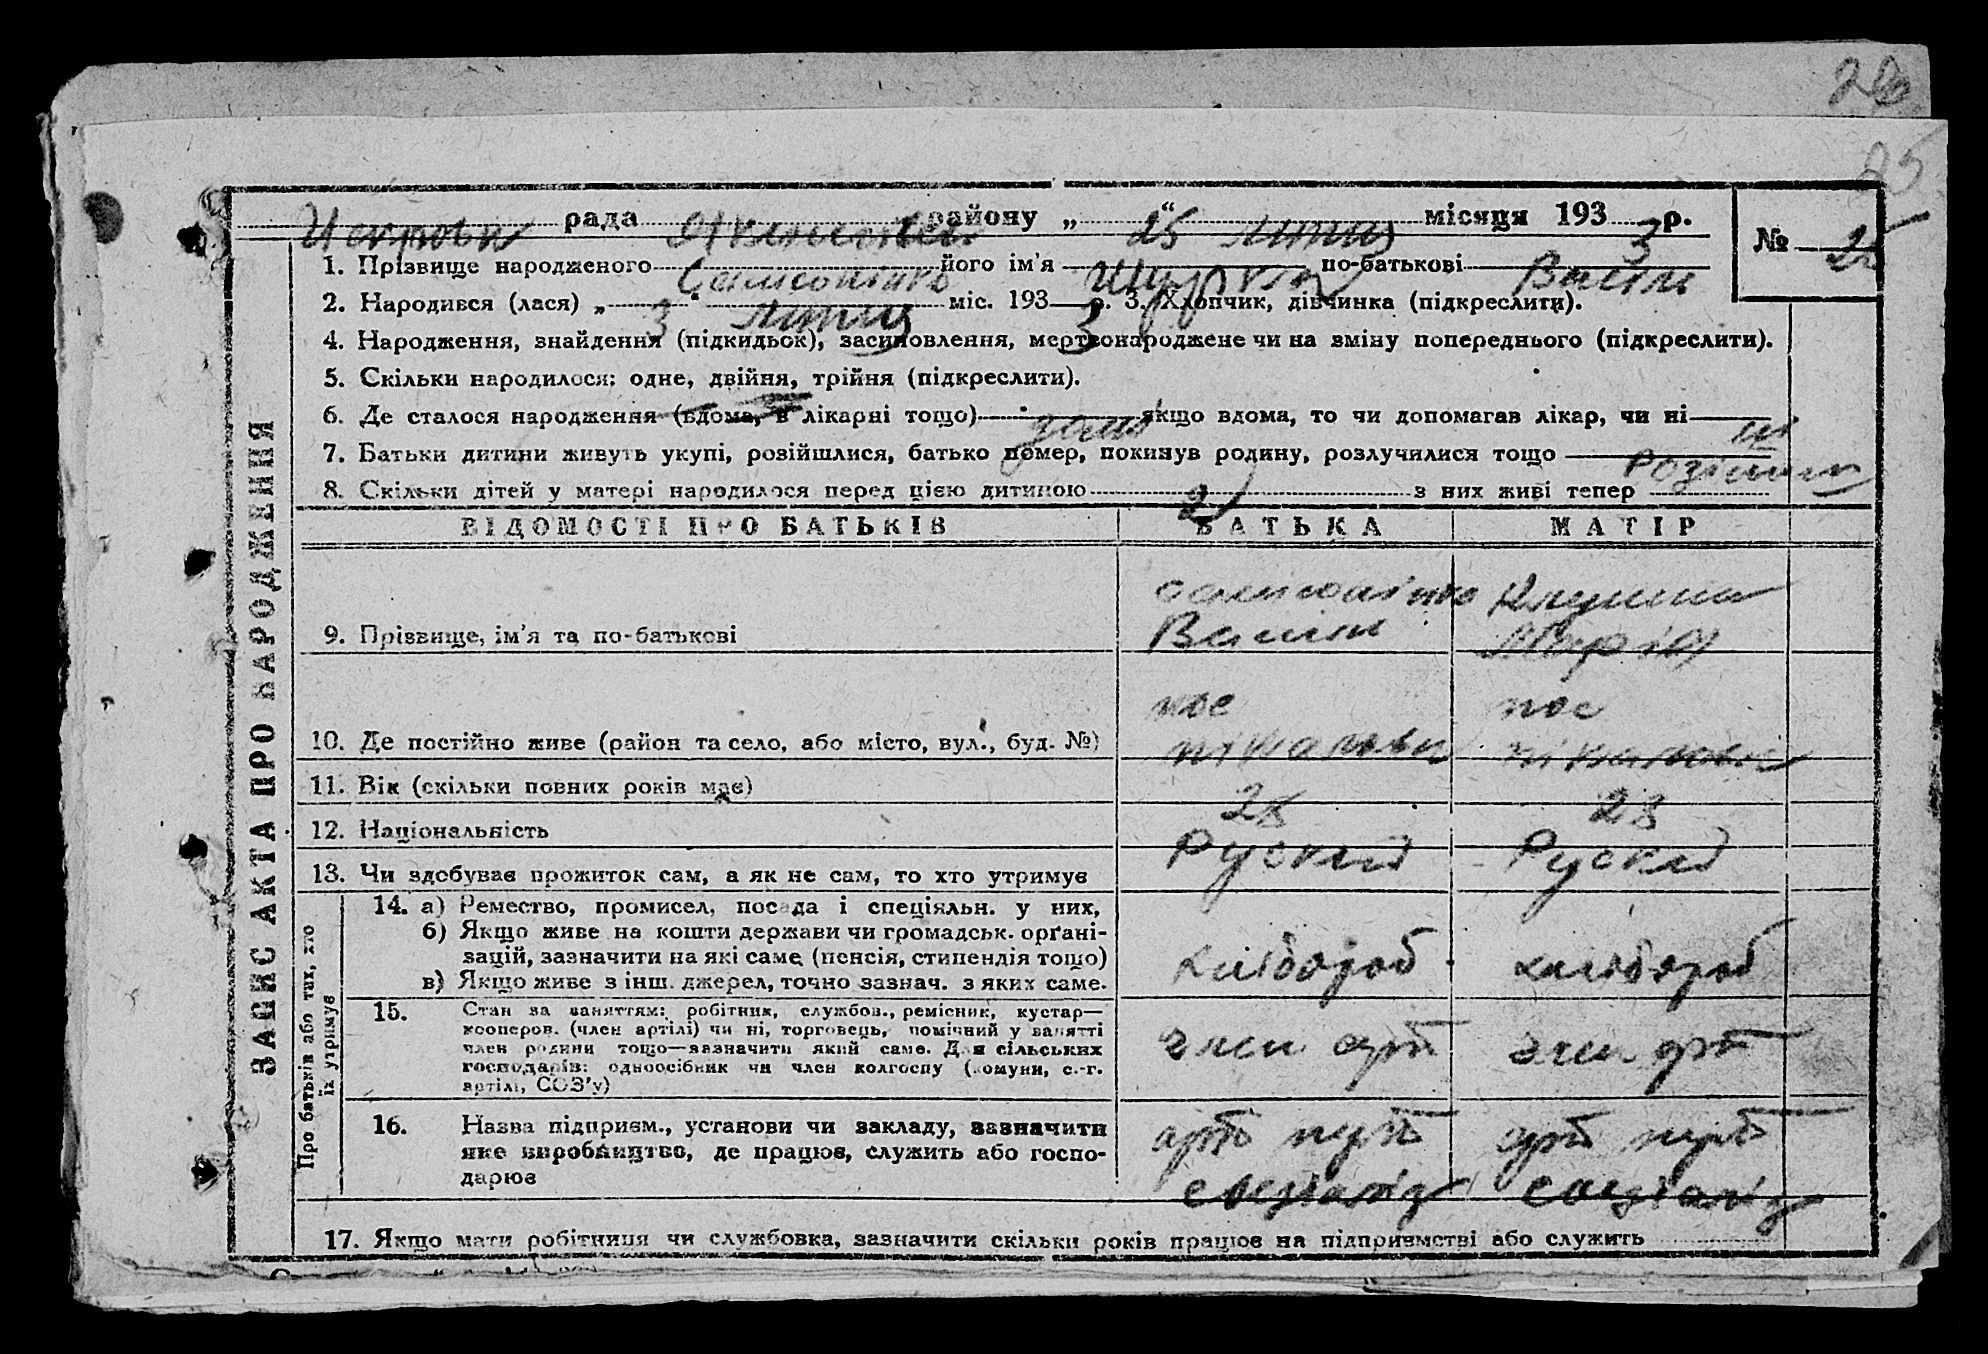 26
25
рада району „ 25 “ лютня місяця 193 3 р.
№ 25
1. Прізвище народженого Самсоненко його ім'я Шурка по-батькові Васіль
2. Народився (лася) „ 3 “ лютня міс. 193 3 р. 3. Хлопчик, дівчинка (підкреслити).
4. Народження, знайдення (підкидьок), засиновлення, мертвонароджене чи на зміну попереднього (підкреслити).
5. Скільки народилося: одне, двійня, трійня (підкреслити).
6. Де сталося народження (вдома, в лікарні тощо) дома якщо вдома, то чи допомагав лікар, чи ні ні
7. Батьки дитини живуть укупі, розійшлися, батько помер, покинув родину, розлучилися тощо
8. Скільки дітей у матері народилося перед цією дитиною 2 з них живі тепер
ВІДОМОСТІ ПРО БАТЬКІВ БАТЬКА МАТІР
ЗАПИС АКТА ПРО НАРОДЖЕННЯ
9. Прізвище, ім'я та по-батькові Васіль Марія
10. Де постійно живе (район та село, або місто, вул., буд. №) пос пос
11. Вік (скільки повних років має) 28 28
12. Національність Руский Руский
13. Чи здобуває прожиток сам, а як не сам, то хто утримує
Про батьків або тих, хто їх утримує
14. а) Ремество, промисел, посада і спеціяльн. у них,
б) Якщо живе на кошти держави чи громадськ. орґані-
зацій, зазначити на які саме (пенсія, стипендія тощо)
в) Якщо живе з інш. джерел, точно зазнач. з яких саме.
хліборob хлібороб
15. Стан за заняттям: робітник, службов., ремісник, кустар—
кооперов. (член артілі) чи ні, торговець, помічний у занятті
член родини тощо—зазначити який саме. Для сільських
господарів: одноосібник чи член колгоспу (комуни, с.-г.
артілі, СОЗ'у)
член арт член арт
16. Назва підприєм., установи чи закладу, зазначити
яке виробництво, де працює, служить або госпо-
дарює
арт арт
17. Якщо мати робітниця чи службовка, зазначити скільки років працює на підприємстві або служить